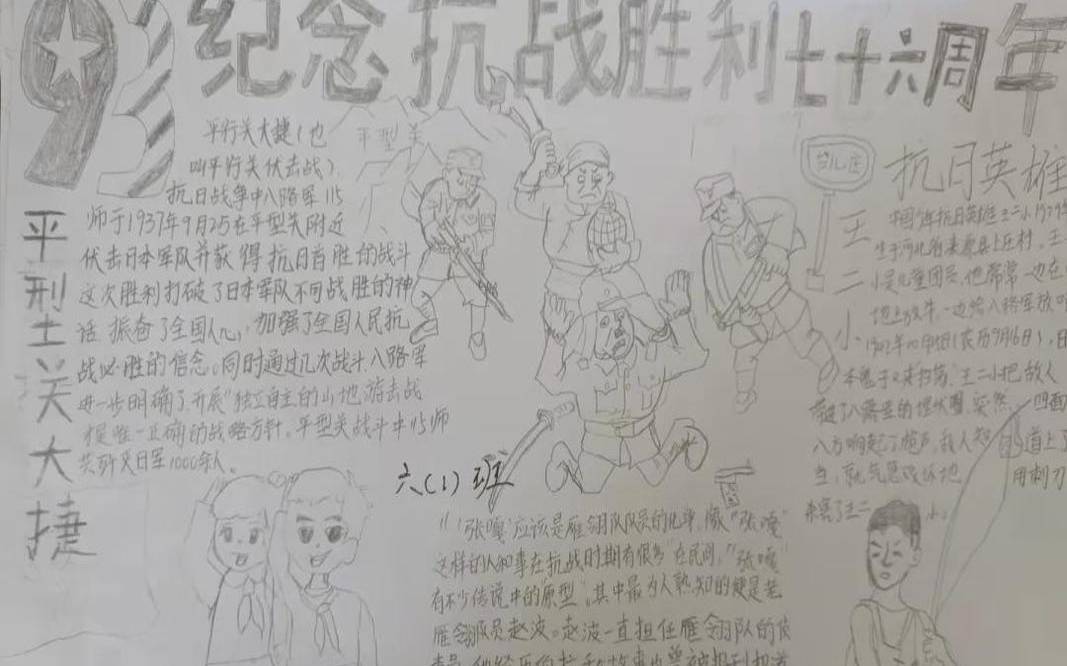 9 3 纪念抗战胜利七十六周年
平型关大捷
平行关大捷(也
叫平行关伏击战)
抗日战争中八路军115
师于1937年9月25在平型关附近
伏击日本军队并获得抗日首胜的战斗
这次胜利打破了日本军队不可战胜的神
话 振奋了全国人心,加强了全国人民抗
战必胜的信念。同时通过几次战斗八路军
进一步明确了开展"独立自主的山地游击战
才是唯一正确的战略方针。平型关战斗中115师
共歼灭日军1000余人。
平型关
台儿庄
六(1)班
"'张嘎'应该是雁翎队队员的化身,像"张嘎"
这样的人和事在抗战时期有很多"在民间,"张嘎"
有不少传说中的"原型"。其中最为人熟知的便是老
雁翎队员赵波。赵波一直担任雁翎队的侦
抗日英雄
王二小
中国少年抗日英雄王二小1929年
生于河北省涞源县上庄村。王
小是儿童团员,他常常一边在
地上放牛,一边给八路军放哨
本鬼子又来扫荡,王二小把敌人
带进了八路军的埋伏圈,突然 四面
八方响起了枪声,敌人知道上了
当,就气急败坏地 用刺刀
来害了王二小。